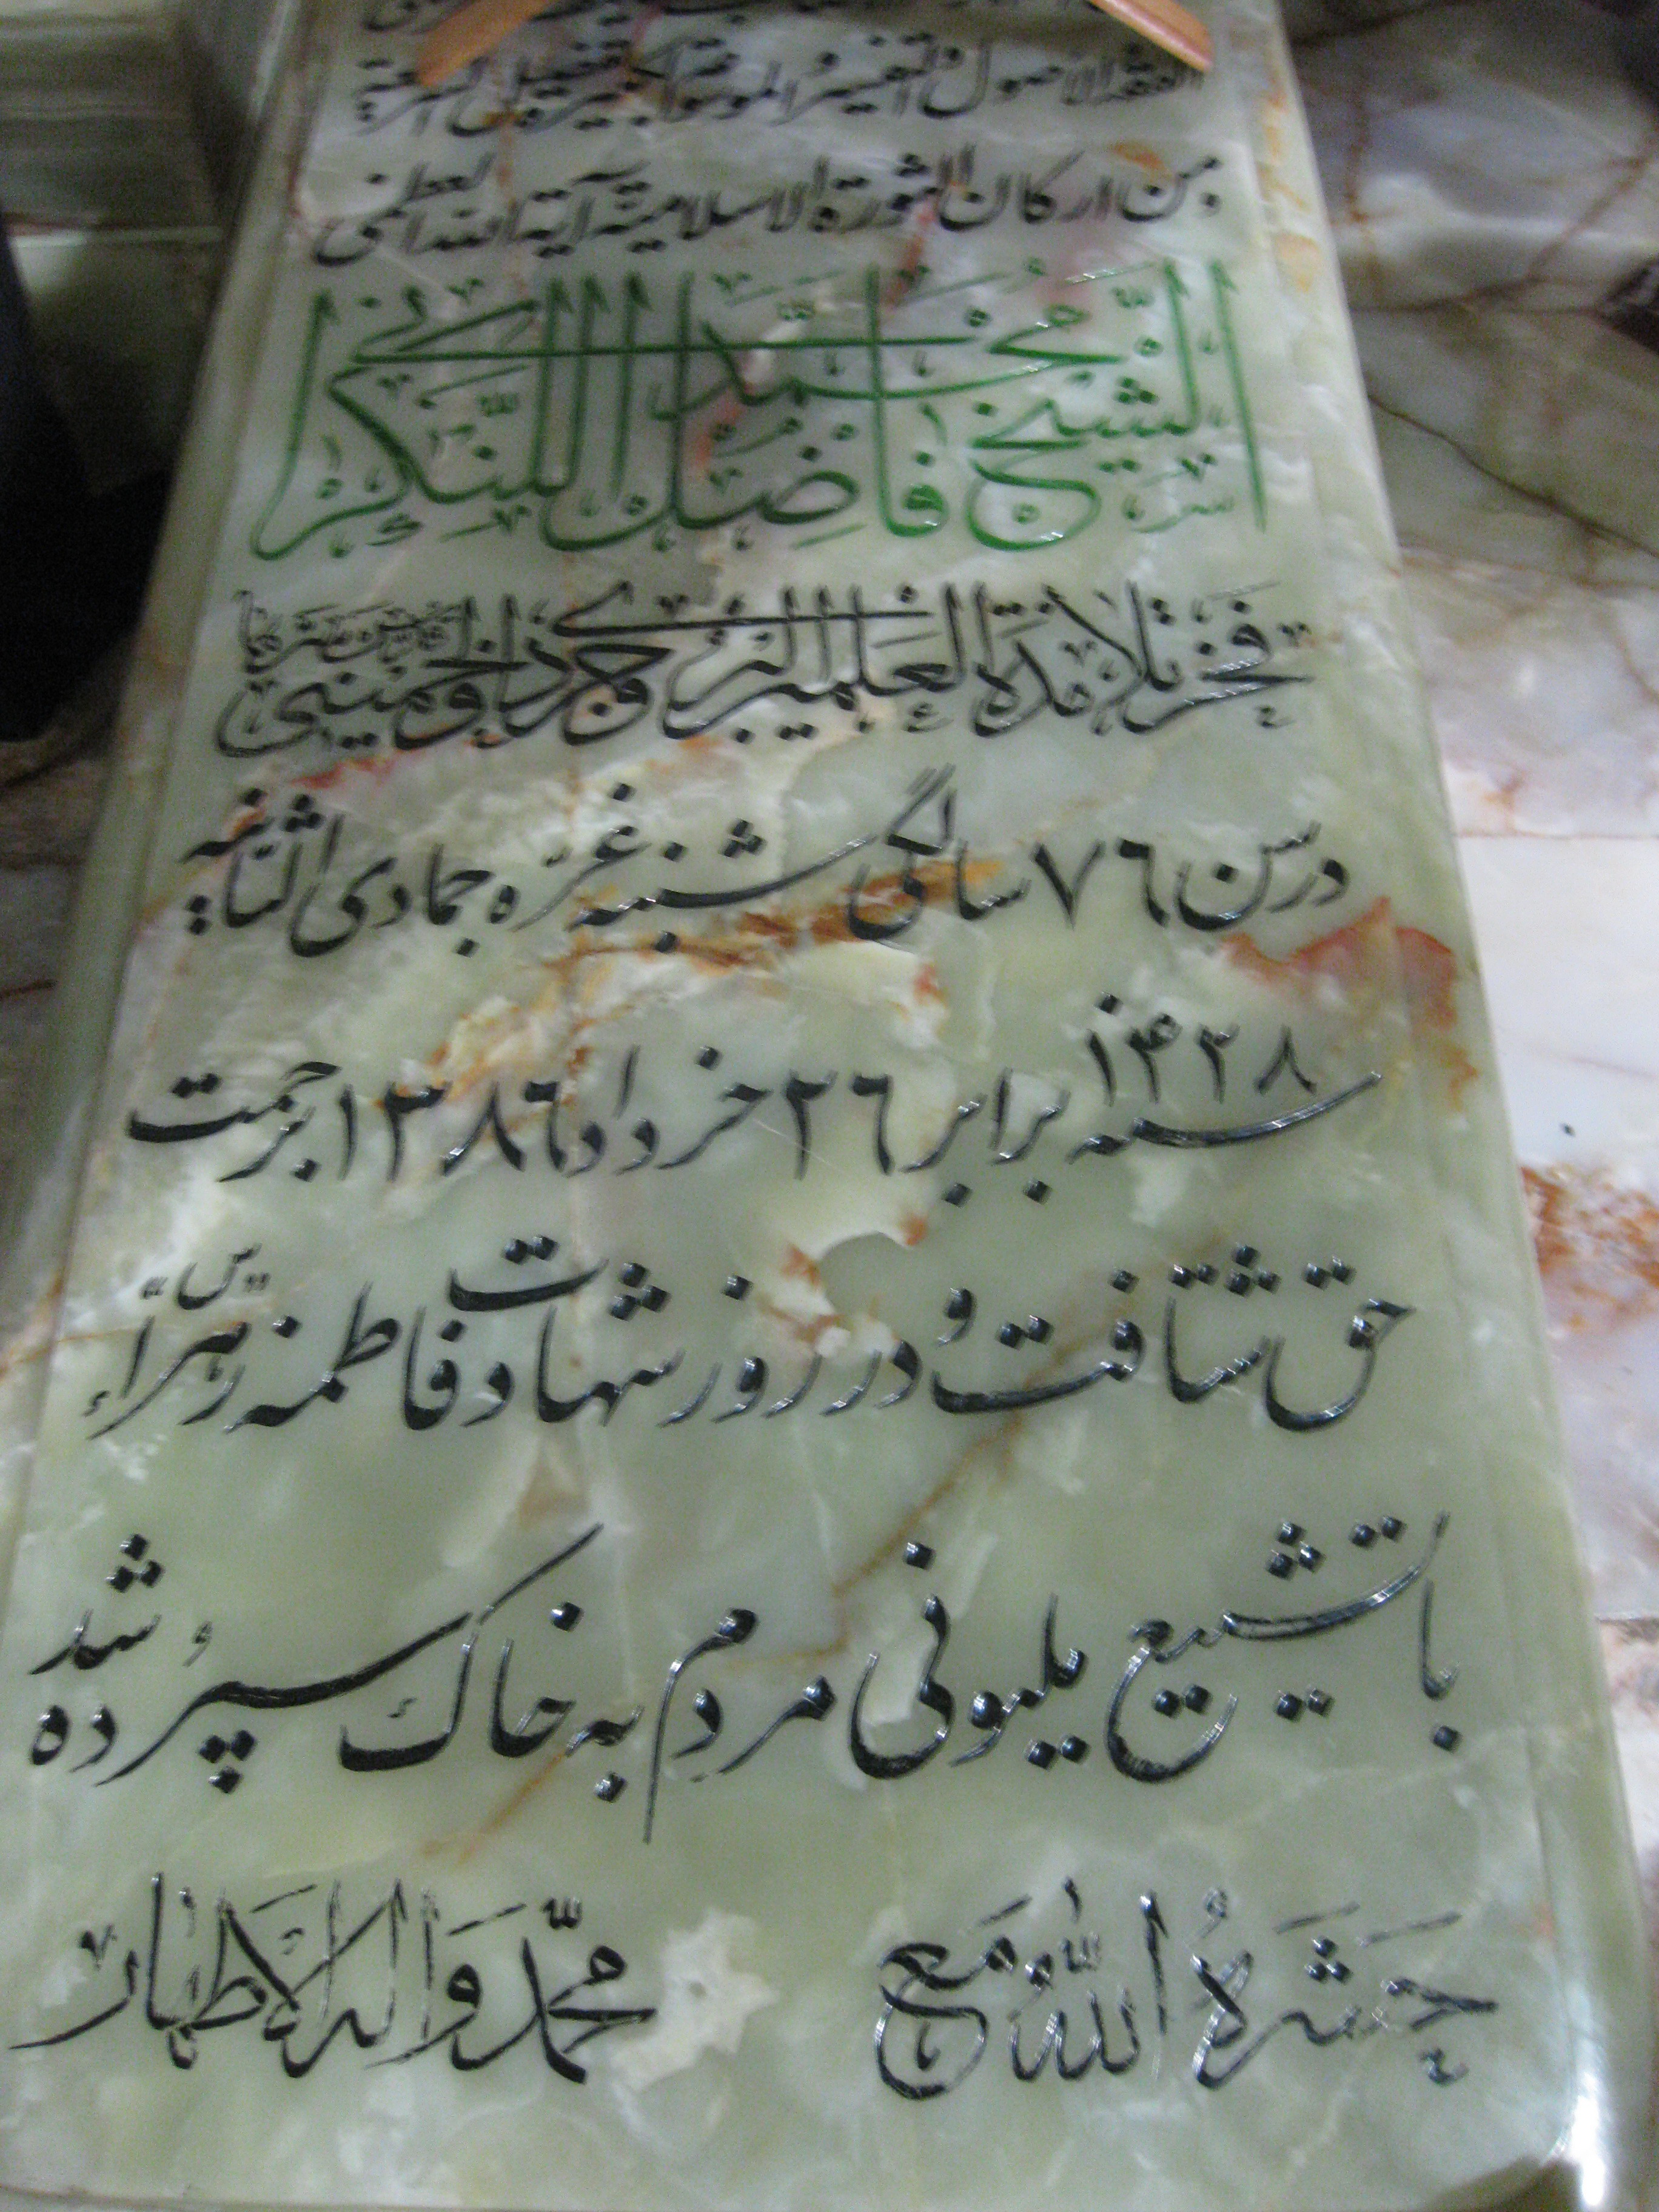 الفقه الاصول التفسير الموسوعة الكبيرة تفصيل الشريعة
من اركان الثورة الاسلامية آية الله العظمى
الشيخ محمد فاضل اللنكراني
فخر تلامذة العلمين البروجردي والخميني
در سن ٧٦ سالگی شنبه غرّه جمادی الثانیه
سنه ١۴٢٨ برابر ٢٦ خرداد ١٣٨٦ برحمت
حق شتافت و در روز شهادت فاطمه زهراء س
با تشییع میلیونی مردم به خاک سپرده شد
حشره الله مع محمّد واله الاطهار